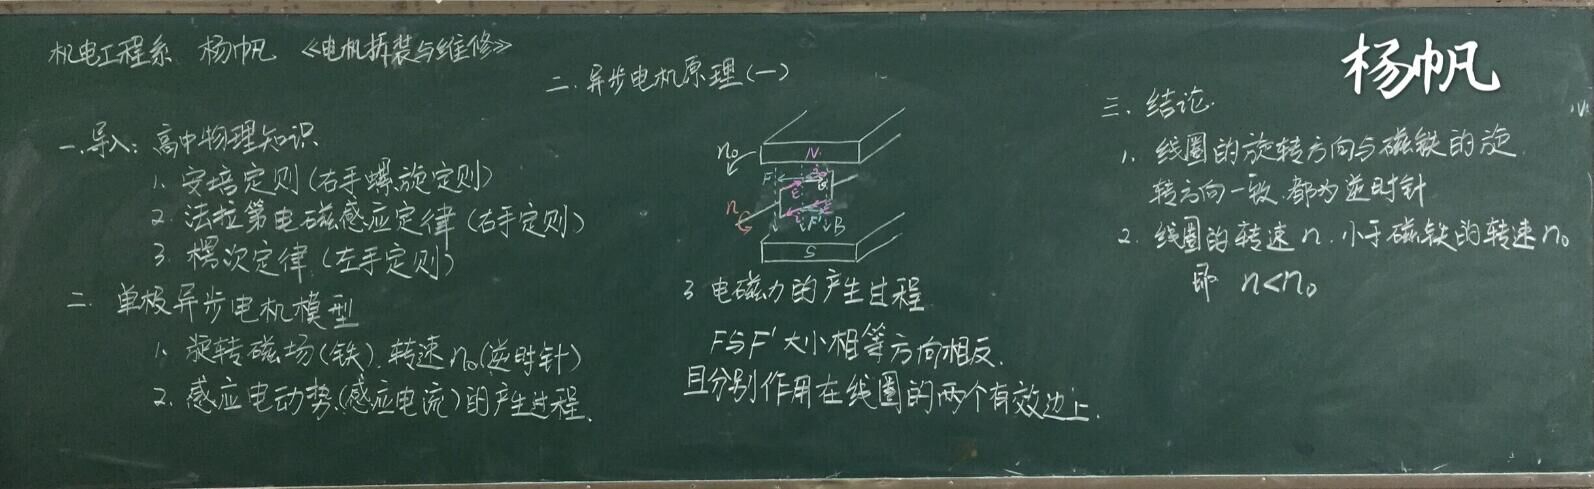 机电工程系 杨帆 《电机拆装与维修》
二.异步电机原理(一)
杨帆
一.导入：高中物理知识
1.安培定则(右手螺旋定则)
2.法拉第电磁感应定律(右手定则)
3.楞次定律.(左手定则)
二.单极异步电机模型
1.旋转磁场(铁).转速n₀(逆时针)
2.感应电动势(感应电流)的产生过程.
n₀
N
F
E
i
n
i
E
F'
B
S
3.电磁力的产生过程
F与F'大小相等方向相反.
且分别作用在线圈的两个有效边上.
三.结论.
1.线圈的旋转方向与磁铁的旋
转方向一致.都为逆时针
2.线圈的转速n.小于磁铁的转速n₀
即 n<n₀